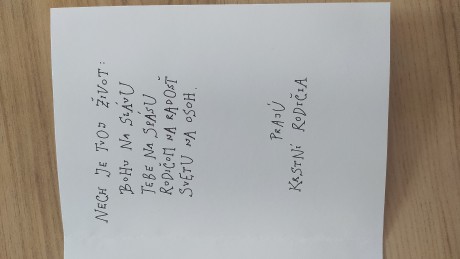 NECH JE TVOJ ŽIVOT:
BOHU NA SLÁVU
TEBE NA SPÁSU
RODIČOM NA RADOSŤ
SVETU NA OSOH.
PRAJÚ
KRSTNÍ RODIČIA